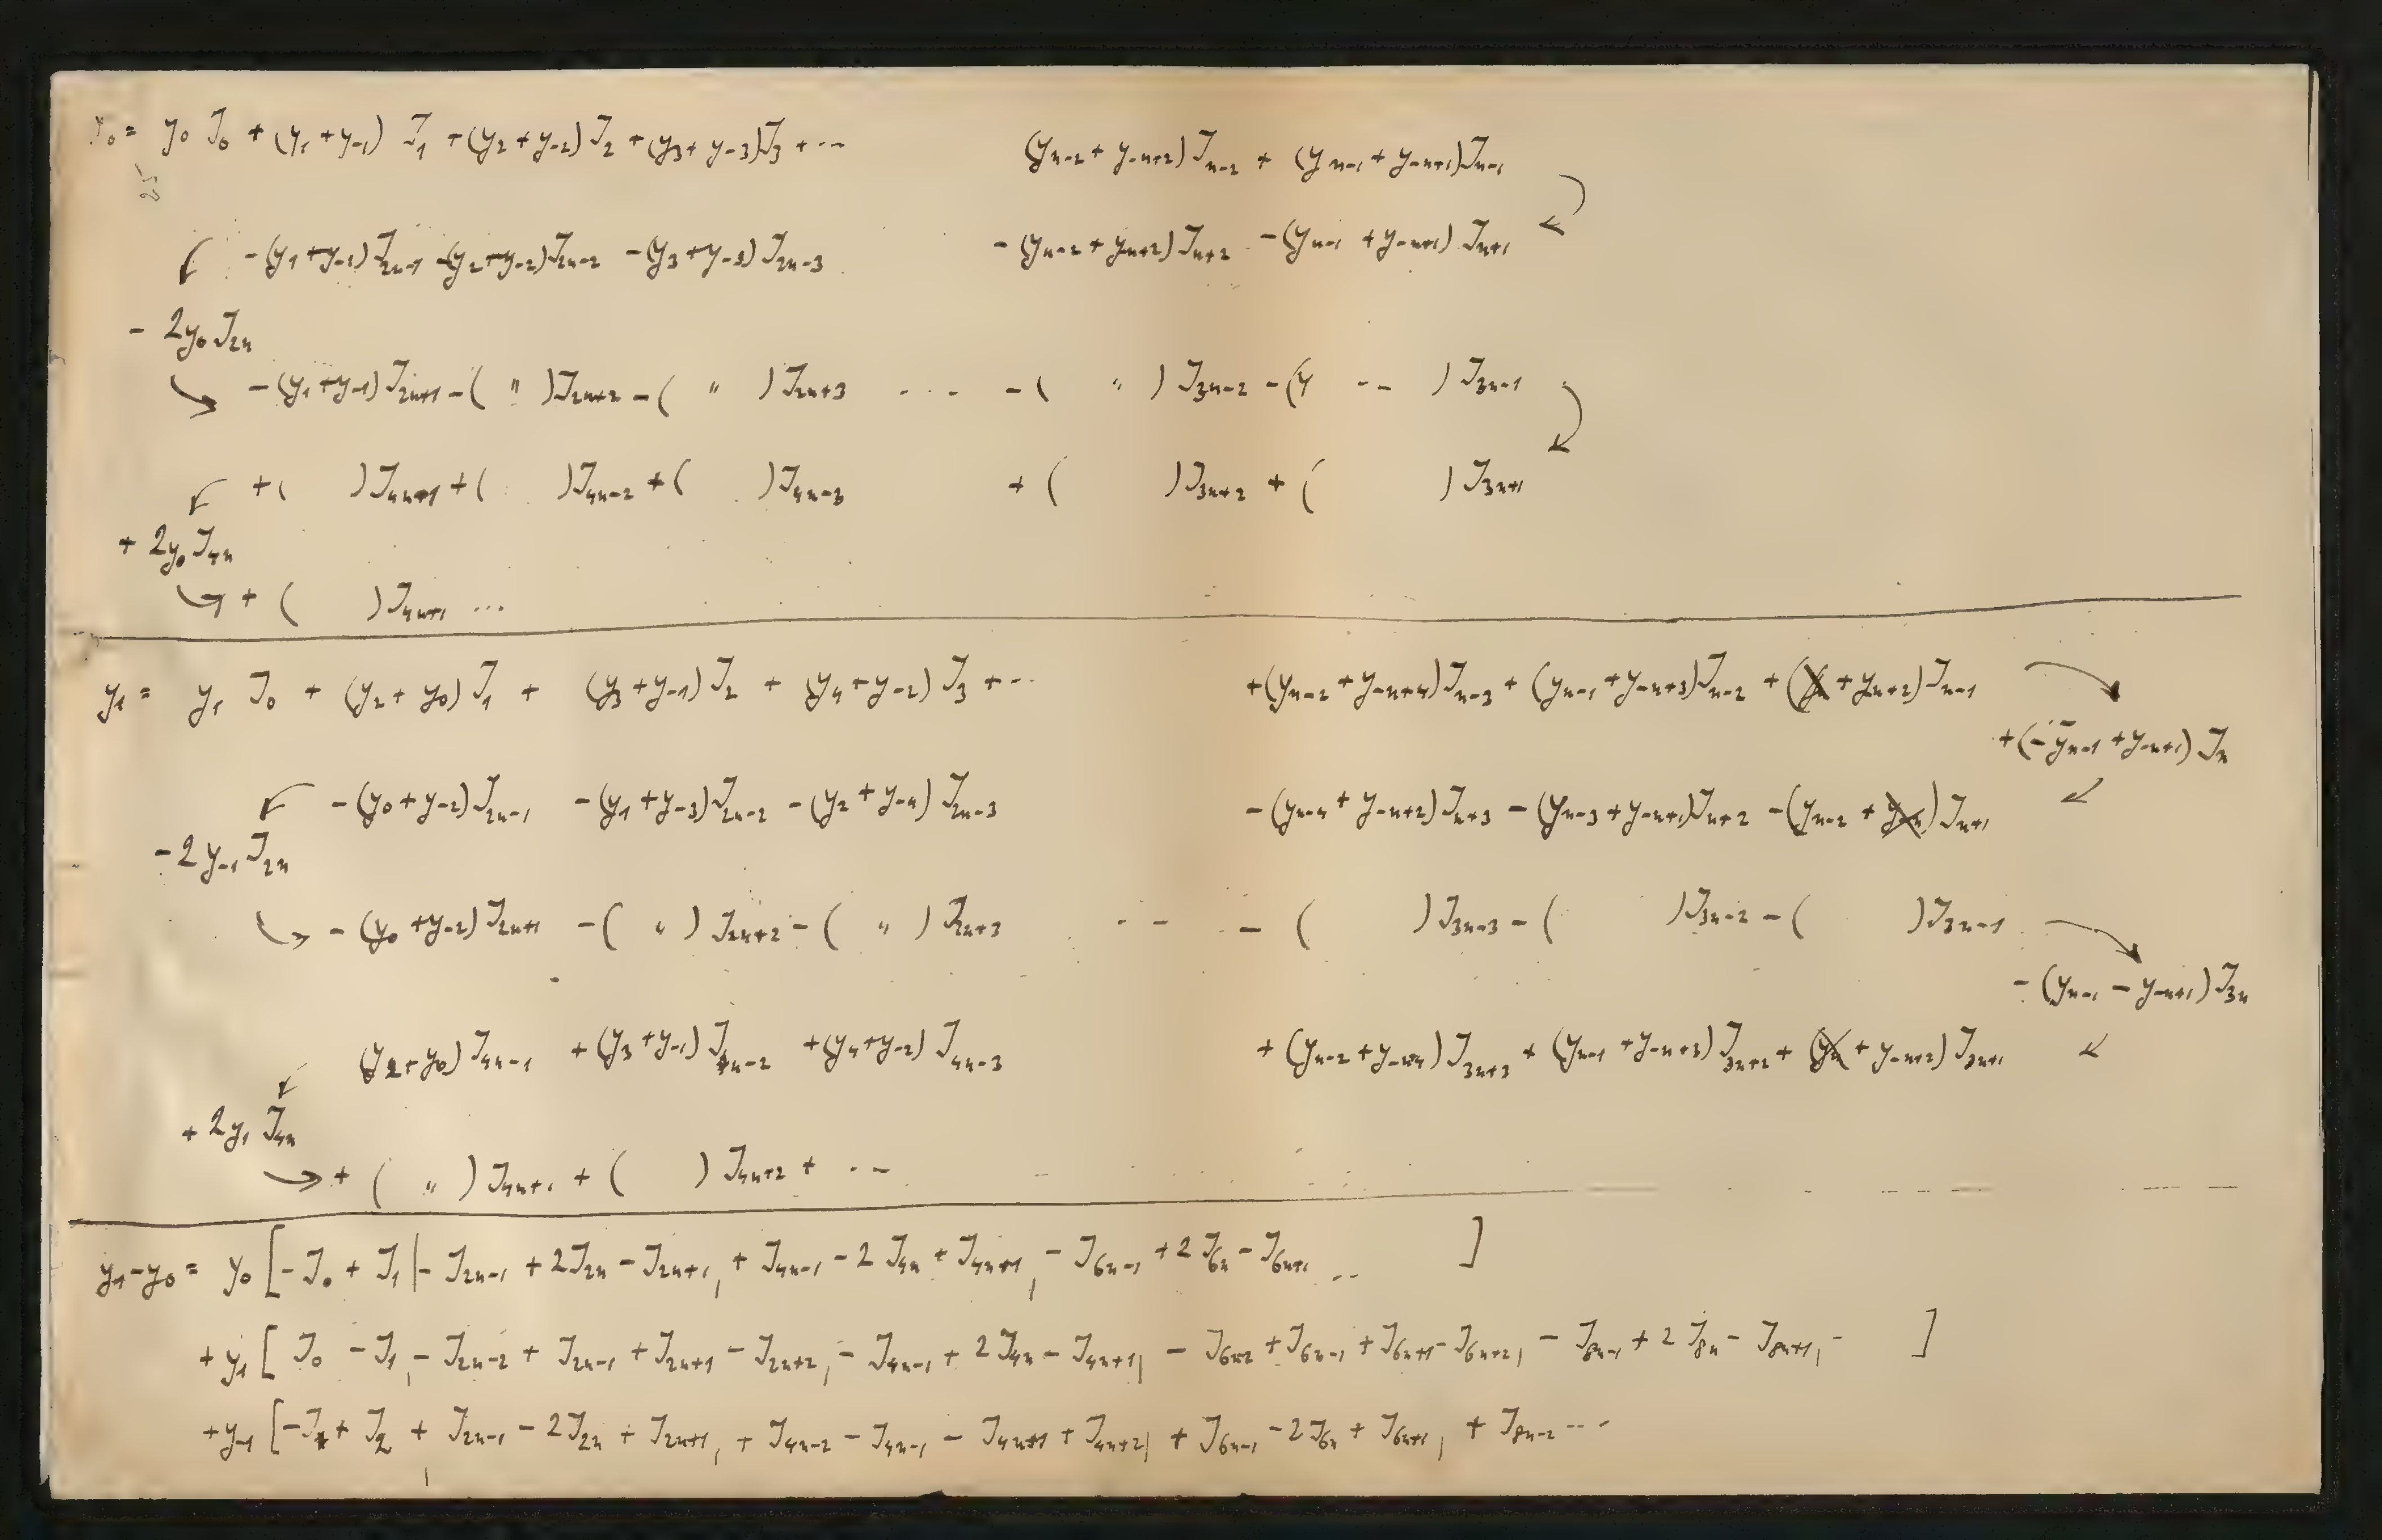 y₀ = y₀ J₀ + (y₁ + y₋₁) J₁ + (y₂ + y₋₂) J₂ + (y₃ + y₋₃) J₃ + ··· (yₙ₋₂ + y₋ₙ₊₂) Jₙ₋₂ + (yₙ₋₁ + y₋ₙ₊₁) Jₙ₋₁
25
↙ -(y₁ + y₋₁) J₂ₙ₋₁ -(y₂ + y₋₂) J₂ₙ₋₂ -(y₃ + y₋₃) J₂ₙ₋₃ -(yₙ₋₂ + yₙ₊₂) Jₙ₊₂ -(yₙ₋₁ + y₋ₙ₊₁) Jₙ₊₁ ↙
- 2y₀ J₂ₙ
↘ -(y₁ + y₋₁) J₂ₙ₊₁ - ( " ) J₂ₙ₊₂ - ( " ) J₂ₙ₊₃ ··· - ( " ) J₃ₙ₋₂ - (y ·· ) J₃ₙ₋₁
↙ + ( ) J₄ₙ₋₁ + ( ) J₄ₙ₋₂ + ( ) J₄ₙ₋₃ + ( ) J₃ₙ₊₂ + ( ) J₃ₙ₊₁ ↙
+ 2y₀ J₄ₙ
↪ + ( ) J₄ₙ₊₁ ···
y₁ = y₁ J₀ + (y₂ + y₀) J₁ + (y₃ + y₋₁) J₂ + (y₄ + y₋₂) J₃ + ··· + (yₙ₋₂ + y₋ₙ₊₄) Jₙ₋₃ + (yₙ₋₁ + y₋ₙ₊₃) Jₙ₋₂ + ( + yₙ₊₂) Jₙ₋₁ ↘
+ (- yₙ₋₁ + y₋ₙ₊₁) Jₙ
↙ -(y₀ + y₋₂) J₂ₙ₋₁ -(y₁ + y₋₃) J₂ₙ₋₂ -(y₂ + y₋₄) J₂ₙ₋₃ -(yₙ₋₄ + y₋ₙ₊₂) Jₙ₊₃ - (yₙ₋₃ + y₋ₙ₊₁) Jₙ₊₂ -(yₙ₋₂ + y₋ₙ) Jₙ₊₁ ↙
- 2y₋₁ J₂ₙ
↪ -(y₀ + y₋₂) J₂ₙ₊₁ - ( " ) J₂ₙ₊₂ - ( " ) J₂ₙ₊₃ ·· - ( ) J₃ₙ₋₃ - ( ) J₃ₙ₋₂ - ( ) J₃ₙ₋₁ ↘
- (yₙ₋₁ - y₋ₙ₊₁) J₃ₙ
↙ (y₂ + y₀) J₄ₙ₋₁ + (y₃ + y₋₁) J₄ₙ₋₂ + (y₄ + y₋₂) J₄ₙ₋₃ + (yₙ₋₂ + y₋ₙ₊₄) J₃ₙ₊₃ + (yₙ₋₁ + y₋ₙ₊₃) J₃ₙ₊₂ + (yₙ + y₋ₙ₊₂) J₃ₙ₊₁ ↙
+ 2y₁ J₄ₙ
→ + ( " ) J₄ₙ₊₁ + ( ) J₄ₙ₊₂ + ···
y₁ - y₀ = y₀ [ - J₀ + J₁ | - J₂ₙ₋₁ + 2J₂ₙ - J₂ₙ₊₁, + J₄ₙ₋₁ - 2 J₄ₙ + J₄ₙ₊₁, - J₆ₙ₋₁ + 2 J₆ₙ - J₆ₙ₊₁ ·· ]
+ y₁ [ J₀ - J₁, - J₂ₙ₋₂ + J₂ₙ₋₁ + J₂ₙ₊₁ - J₂ₙ₊₂, - J₄ₙ₋₁ + 2 J₄ₙ - J₄ₙ₊₁, - J₆ₙ₋₂ + J₆ₙ₋₁ + J₆ₙ₊₁ - J₆ₙ₊₂, - J₈ₙ₋₁ + 2 J₈ₙ - J₈ₙ₊₁, - ]
+ y₋₁ [ - J₁ + J₂ + J₂ₙ₋₁ - 2 J₂ₙ + J₂ₙ₊₁, + J₄ₙ₋₂ - J₄ₙ₋₁ - J₄ₙ₊₁ + J₄ₙ₊₂, + J₆ₙ₋₁ - 2 J₆ₙ + J₆ₙ₊₁, + J₈ₙ₋₂ ···